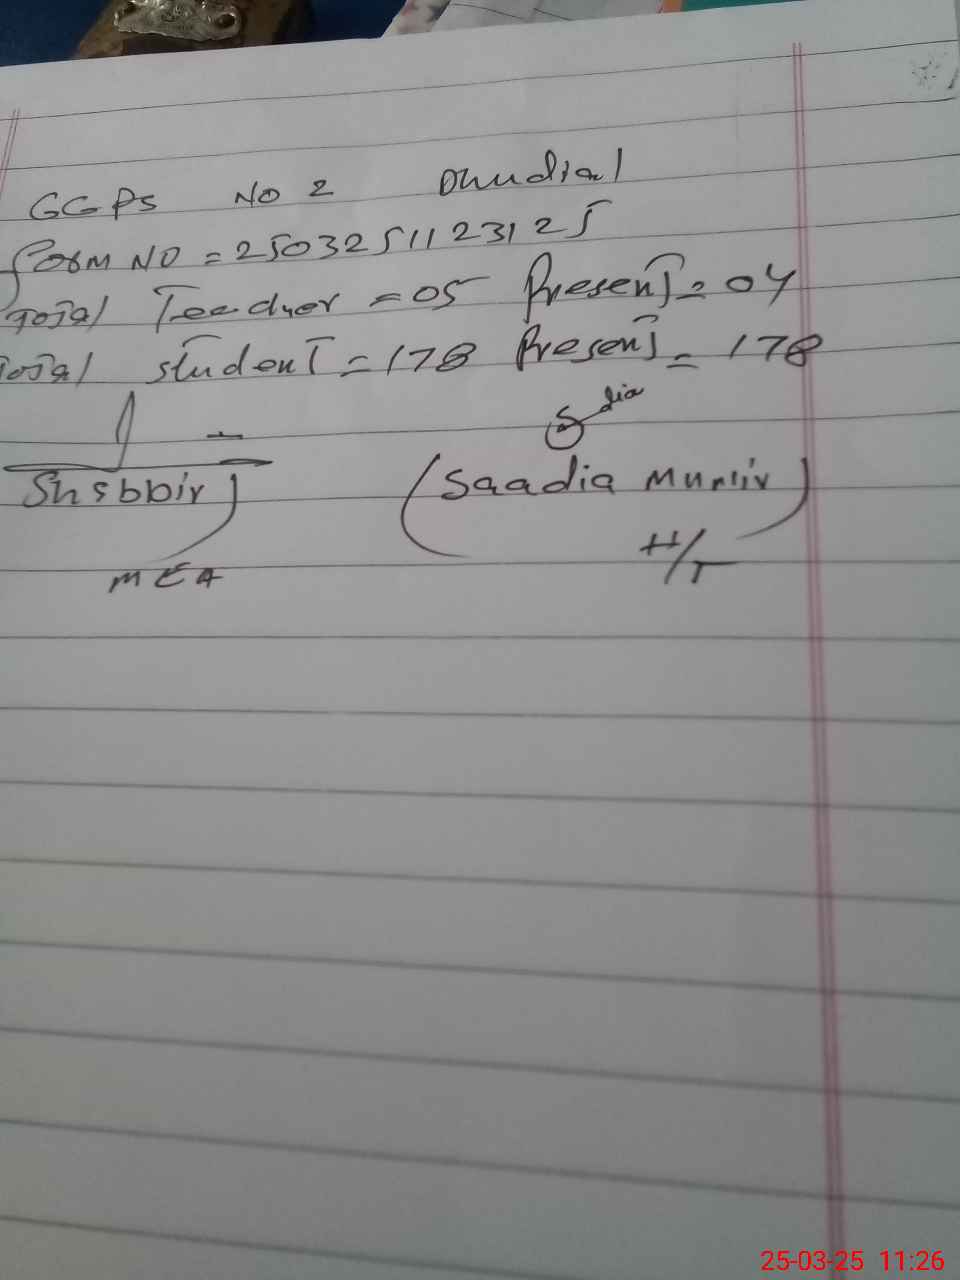 GGPS NO 2 Dhudial
form NO = 2503251123125
Total Teacher = 05 Present = 04
Total student = 178 Present = 178
Sadia
Shabbir) (Saadia Munir)
MEA H/T
25-03-25 11:26